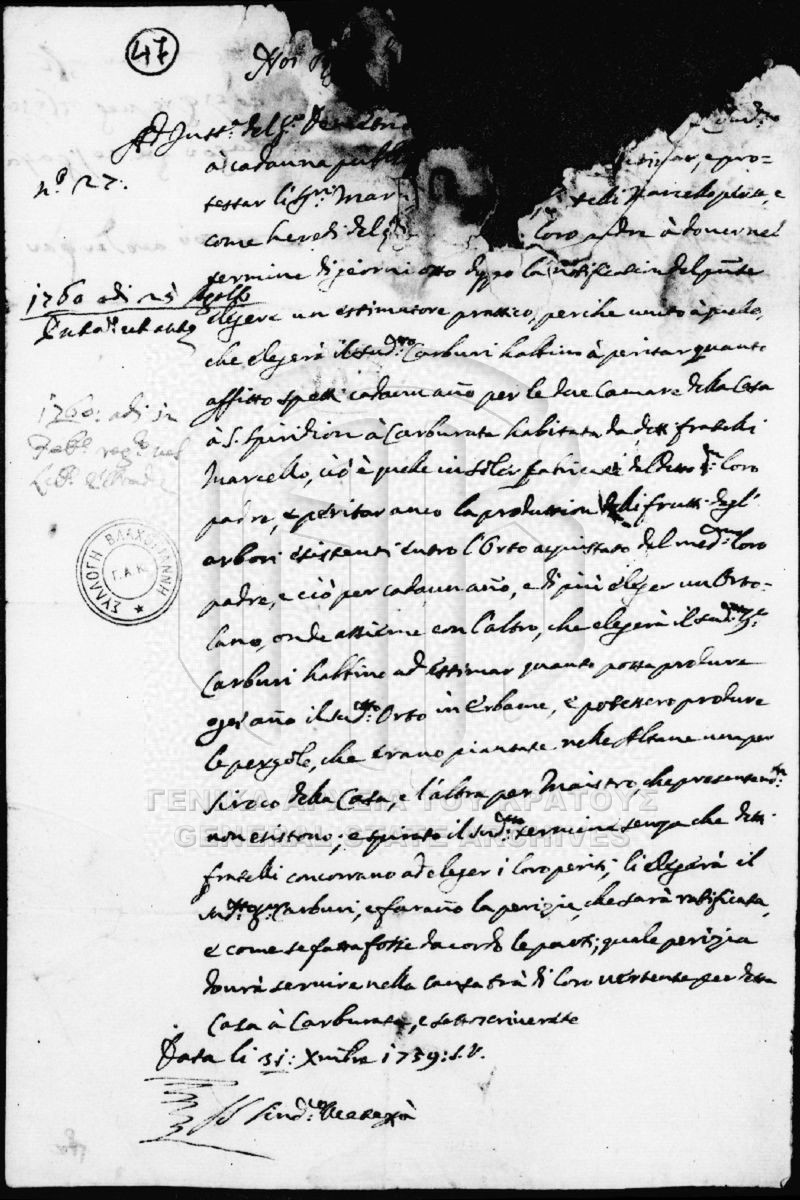 47
Noi
Ad Inst.a del S.r Demetrio
à cadauna publ timar, e pro=
n.o 27:
testar li Sig.ri Mar telli Marcello
come heredi del loro padre à dover nel
termine di giorni otto doppo la notificatione del pnte
1760 adi 25 Agosto
elegere un estimatore prattico, perche unito à quello,
che elegerà il sud.to Carburi habbino à peritar quanto
affitto spetti cadaun año per le due Camare della Casa
1760: adi 12
à S. Spiridion à Carburata habitata da detti fratelli
Feb.o reg.o nel
Marcello, ciò è quele in soler fabricate dal detto loro
Lib.o
padre, e peritar anco la produttion delli frutti degl'
arbori esistenti entro l'Orto acquistato del med.mo loro
padre, e ciò per cadaun año, e di più eleger un Orto=
lano, onde assieme con l'altro, che elegerà il sud.to S.r
Carburi habbino ad estimar quanto possa produre
ogni año il sud.to Orto in Erbame, e potessero produre
le pergole, che erano piantate nelle Altane una per
Siroco della Casa, e l'altra per Maistro, che presentem.te
non esistono; e spirato il sud.to termine senza che detti
fratelli concorrano ad eleger i loro periti, li elegerà il
sud.to S.r Carburi, e farano la perizia, che sarà ratificata,
e come se fatta fosse dacordo le parti; quale perizia
dovrà servire nella causa frà di loro vertente per detta
Casa à Carburata, e sottoscriverete
Data li 31: Xmbre 1759: S.V.
Sind.co
ΣΥΛΛΟΓΗ ΒΛΑΧΟΓΙΑΝΝΗ
Γ.Α.Κ.
ΓΕΝΙΚΑ ΑΡΧΕΙΑ ΤΟΥ ΚΡΑΤΟΥΣ
GENERAL STATE ARCHIVES